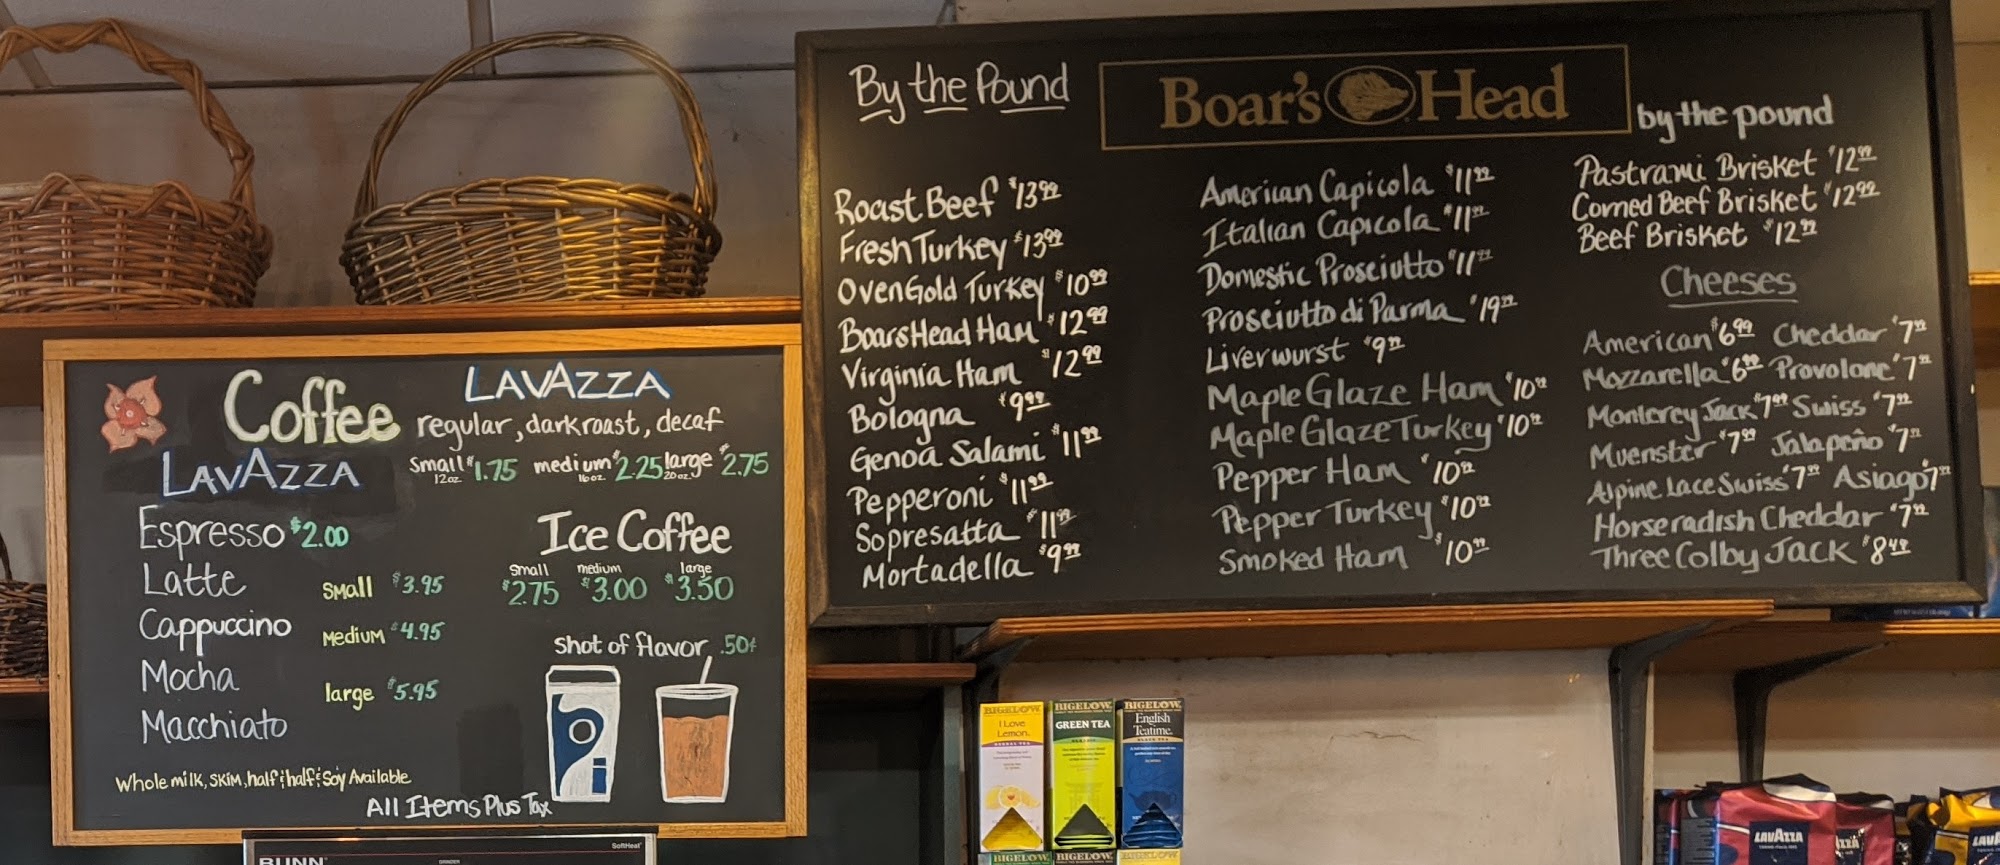 Coffee
LAVAZZA
regular, dark roast, decaf
small $1.75 medium $2.25 large $2.75
12oz. 16oz. 20oz.
LAVAZZA
Espresso $2.00
Latte
Cappuccino
Mocha
Macchiato
small $3.95
medium $4.95
large $5.95
Ice Coffee
small medium large
$2.75 $3.00 $3.50
shot of flavor .50¢
Whole milk, skim, half & half & Soy Available
All Items Plus Tax
BUNN
GRINDER
SoftHeat
By the Pound
Boar's Head
by the pound
Roast Beef $13.99
Fresh Turkey $13.99
OvenGold Turkey $10.99
BoarsHead Ham $12.99
Virginia Ham $12.99
Bologna $9.99
Genoa Salami $11.99
Pepperoni $11.99
Sopresatta $11.99
Mortadella $9.99
American Capicola $11.99
Italian Capicola $11.99
Domestic Prosciutto $11.99
Prosciutto di Parma $19.99
Liverwurst $9.99
Maple Glaze Ham $10.99
Maple Glaze Turkey $10.99
Pepper Ham $10.99
Pepper Turkey $10.99
Smoked Ham $10.99
Pastrami Brisket $12.99
Corned Beef Brisket $12.99
Beef Brisket $12.99
Cheeses
American $6.99 Cheddar $7.99
Mozzarella $6.99 Provolone $7.99
Monterey Jack $7.99 Swiss $7.99
Muenster $7.99 Jalapeño $7.99
Alpine Lace Swiss $7.99 Asiago $7.99
Horseradish Cheddar $7.99
Three Colby Jack $8.49
BIGELOW
I Love
Lemon
HERBAL TEA
BIGELOW
GREEN TEA
CLASSIC
BIGELOW
English
Teatime
BLACK TEA
BIGELOW
BIGELOW
BIGELOW
LAVAZZA